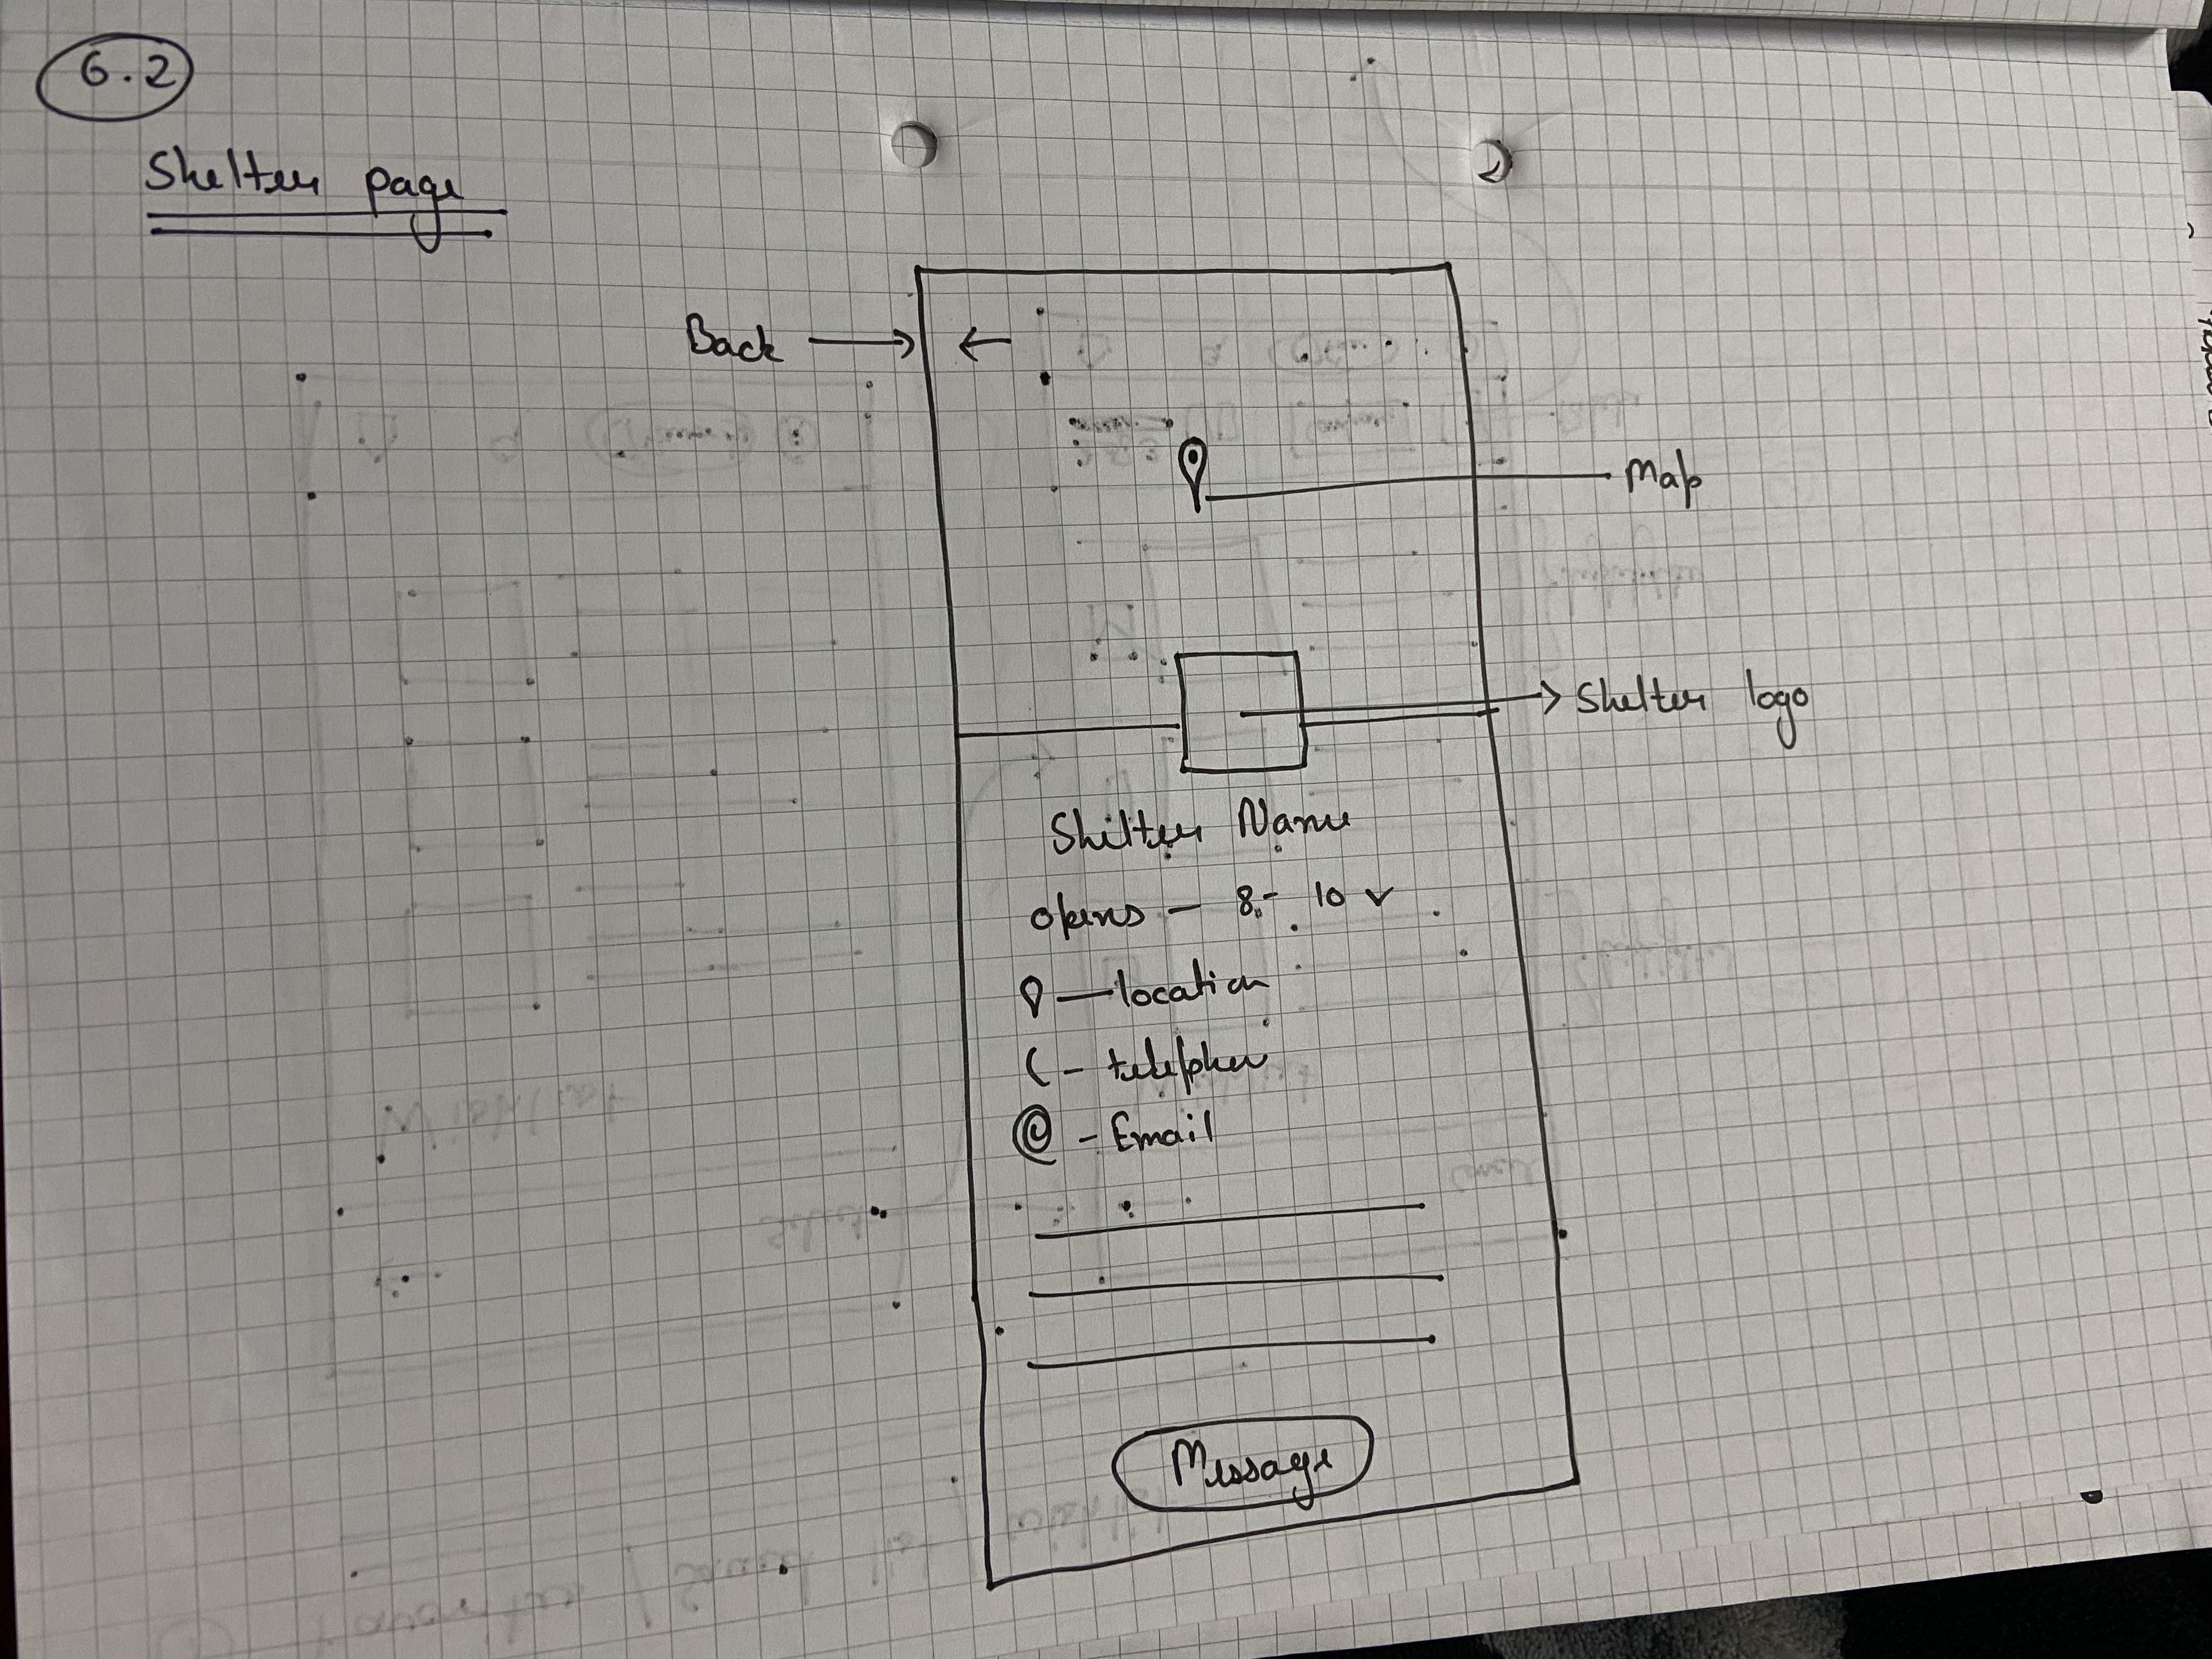 6.2
Shelter page
Back
Map
Shelter logo
Shelter Name
opens - 8 - 10
location
Email
Message